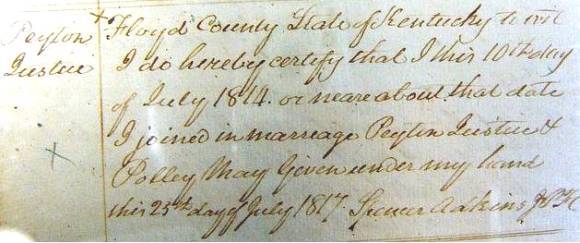 Peyton
Justice
Floyd County State of Kentucky to wit
I do hereby certify that I this 10th day
of July 1814. or neare about that date
I joined in marreage Peyton Justice &
Polley May Given under my hand
this 25th day of July 1817. Spencer Adkins